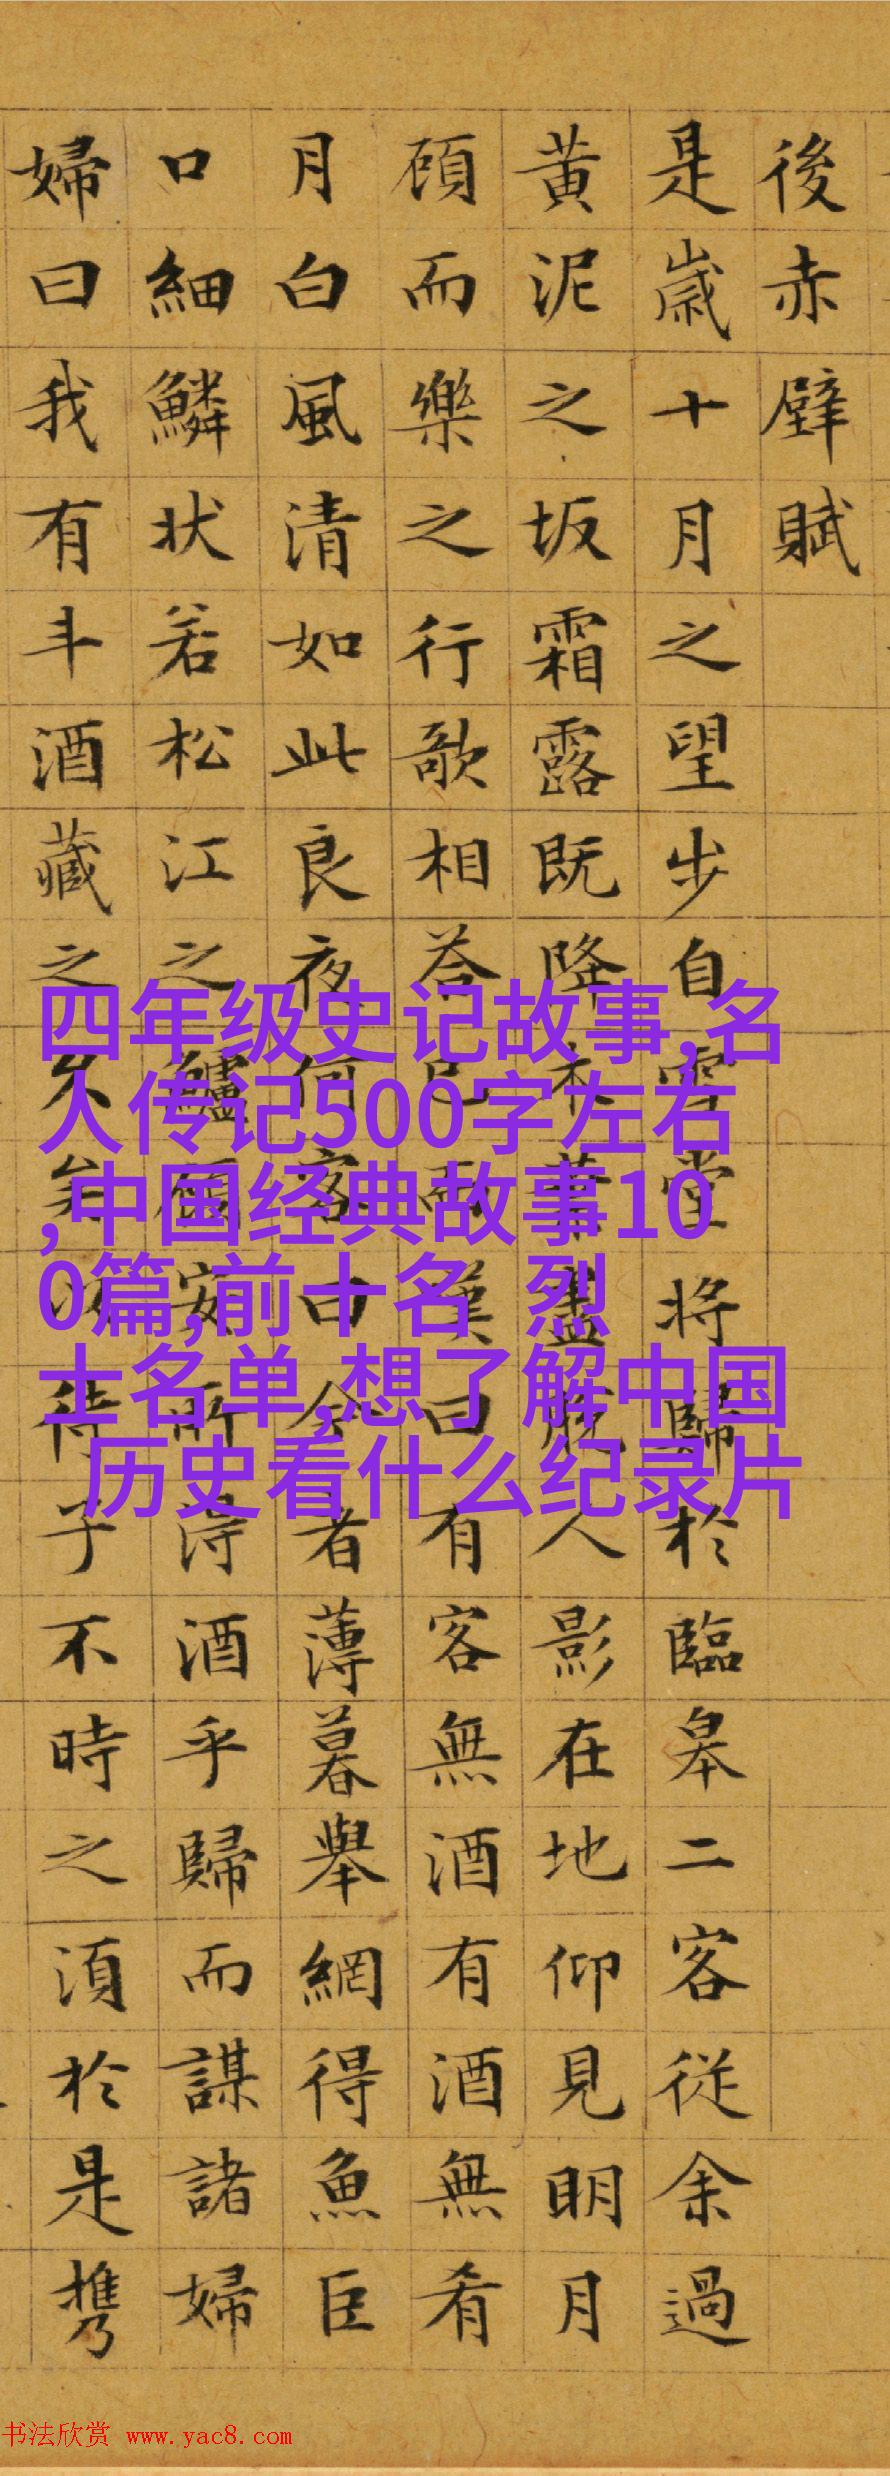 後赤壁賦
是歲十月之望步自雪堂將歸於臨皋二客從余過
黄泥之坂霜露既降木葉盡脫人影在地仰見明月
顧而樂之行歌相荅已而嘆曰有客無酒有酒無肴
月白風清如此良夜何客曰今者薄暮舉網得魚臣
口細鱗狀若松江之鱸顧安所得酒乎歸而謀諸婦
婦曰我有斗酒藏之久矣以待子不時之須於是攜
四年级史记故事,名
人传记500字左右
,中国经典故事10
0篇,前十名 烈
士名单,想了解中国
历史看什么纪录片
书法欣赏 www.yac8.com